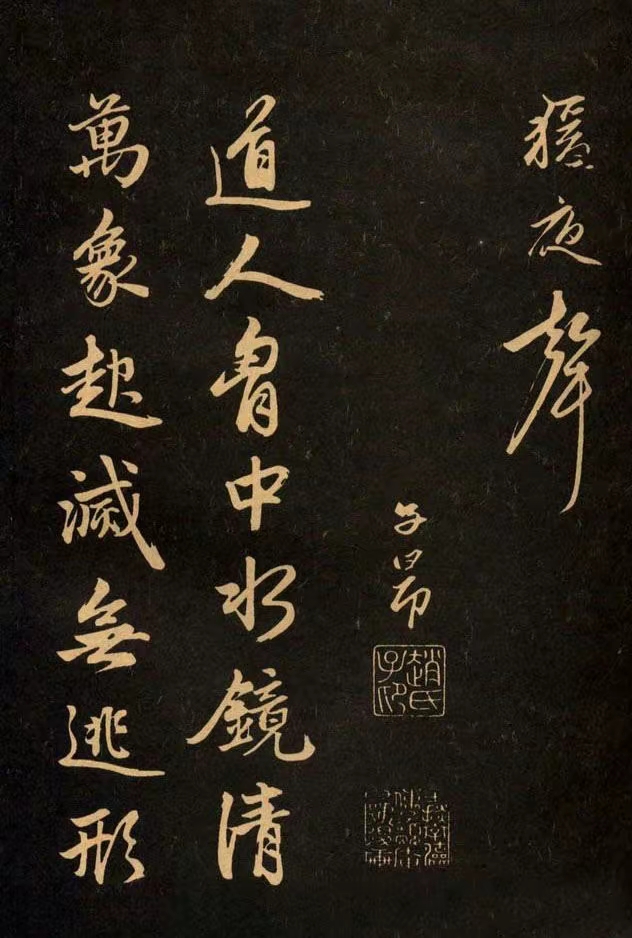 夜聲
子昂
趙氏子昂
道人胷中水鏡清
萬象起滅無逃形